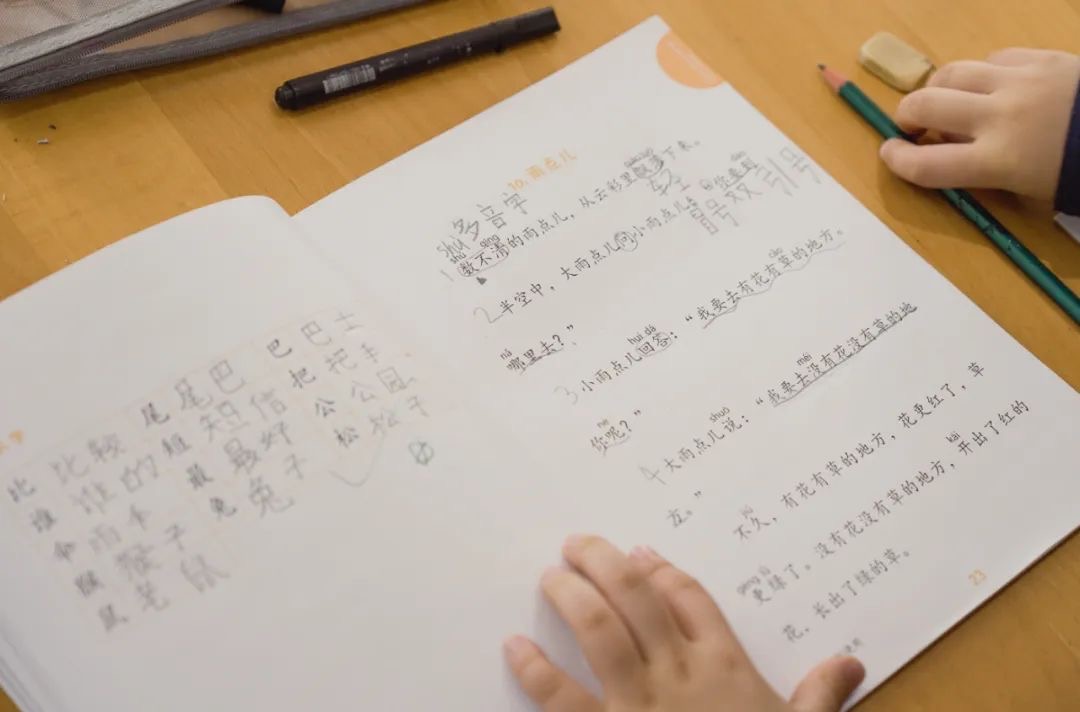 比 比较 尾 尾巴 巴 巴士
谁 谁的 短信 把 把手
最 最好 公 公园
猴 猴子 兔 兔子 松 松子
鼠
10. 雨点儿
shu 多音字
shǔ qīng
1 数不清的雨点儿，从云彩里飘落下来。
冒号 双引号
2 半空中，大雨点儿问小雨点儿：“你要到
nǎ
哪里去？”
huí dá cǎo
3 小雨点儿回答：“我要去有花有草的地方。
ne
你呢？”
shuō méi
4 大雨点儿说：“我要去没有花没有草的地
方。”
jiǔ
不久，有花有草的地方，花更红了，草
gèng lǜ kāi
更绿了。没有花没有草的地方，开出了红的
花，长出了绿的草。
23